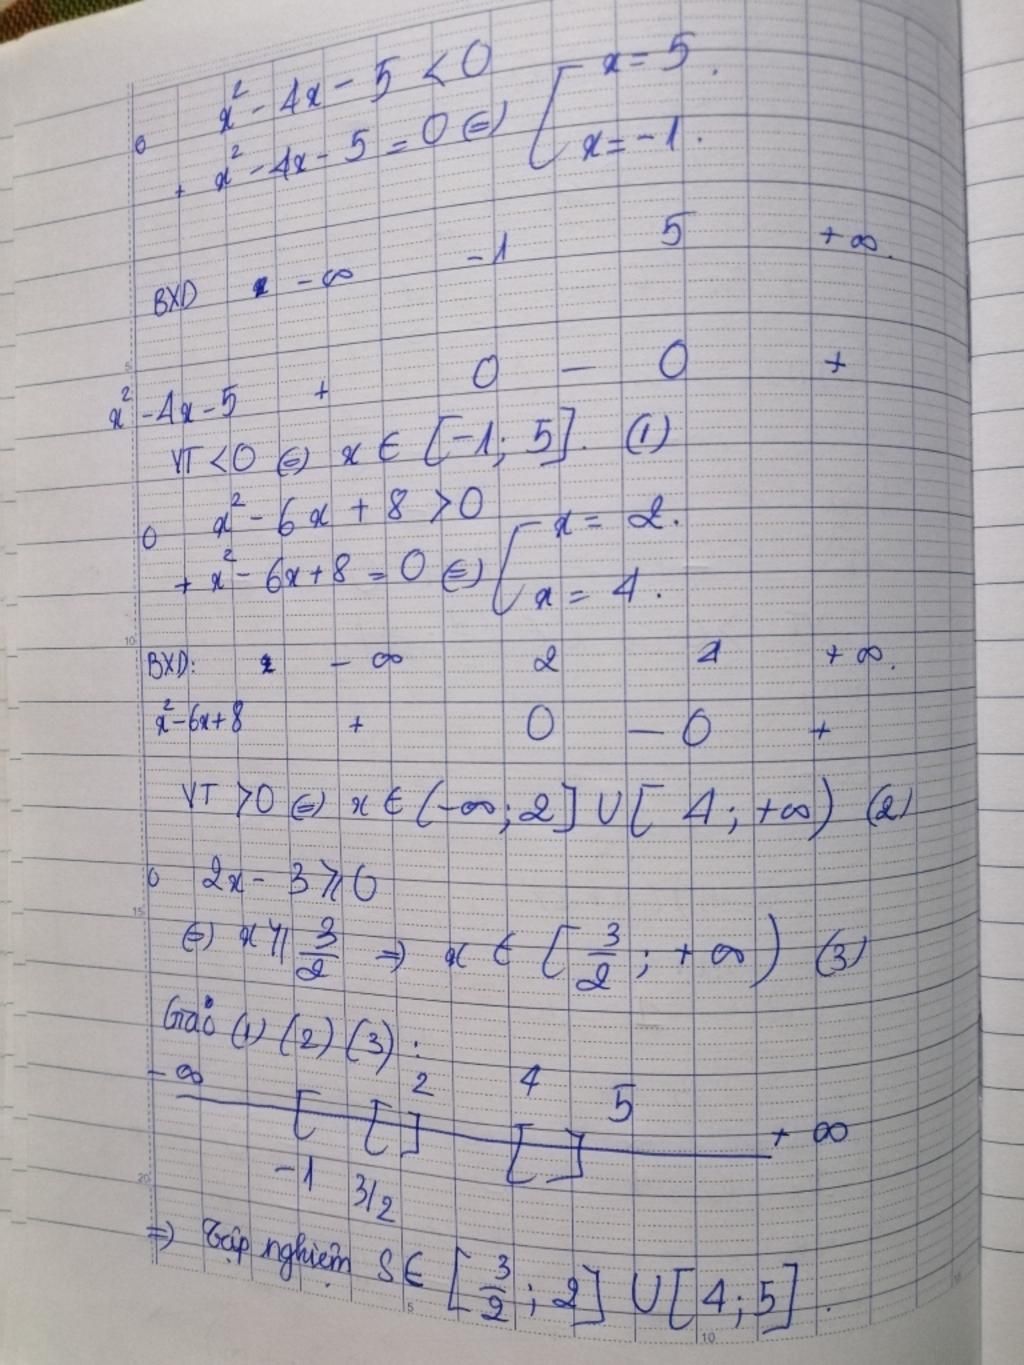 o x² - 4x - 5 < 0
+ x² - 4x - 5 = 0 ⇔ [ x = 5.
x = -1.
BXD x -∞ -1 5 +∞.
x² - 4x - 5 + 0 - 0 +
VT < 0 ⇔ x ∈ [-1; 5]. (1)
o x² - 6x + 8 > 0
+ x² - 6x + 8 = 0 ⇔ [ x = 2.
x = 4.
BXD: x -∞ 2 4 +∞.
x² - 6x + 8 + 0 - 0 +
VT > 0 ⇔ x ∈ (-∞; 2] ∪ [4; +∞) (2)
o 2x - 3 ⩾ 0
⇔ x ⩾ 3/2 ⇒ x ∈ [3/2; +∞) (3)
Giao (1) (2) (3) :
-∞ 2 4 5
[ [ ] [ ] +∞
-1 3/2
⇒ Tập nghiệm S ∈ [3/2; 2] ∪ [4; 5].